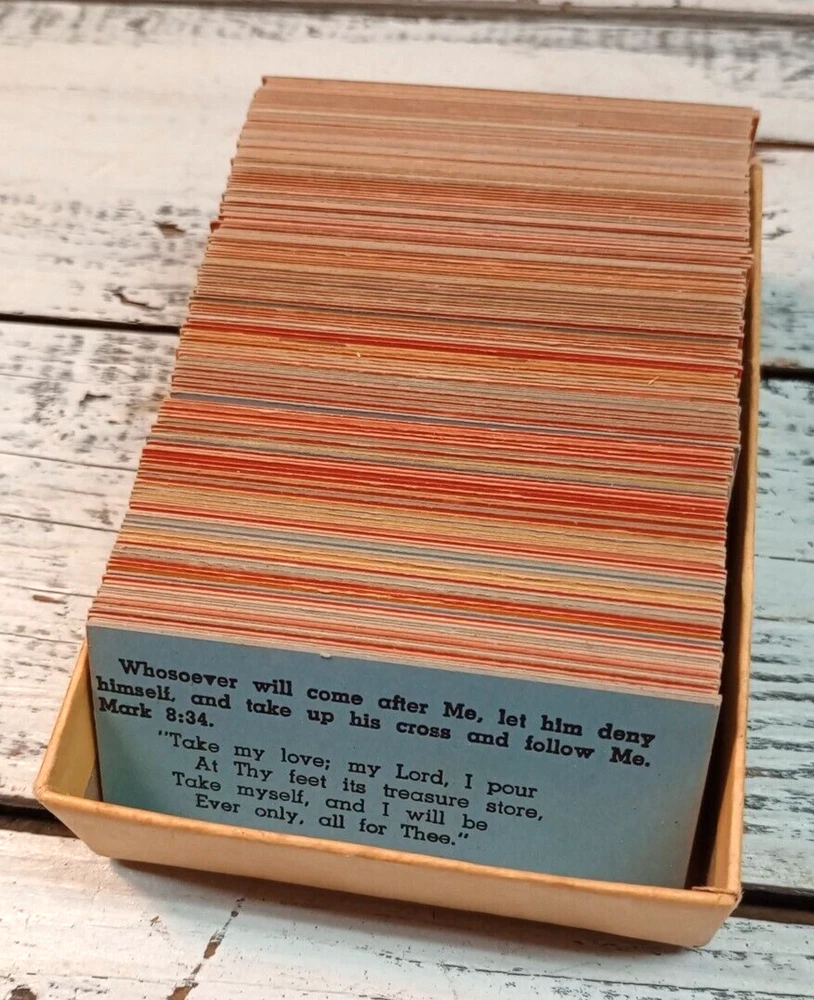 Whosoever will come after Me, let him deny
himself, and take up his cross and follow Me.
Mark 8:34.
"Take my love; my Lord, I pour
At Thy feet its treasure store,
Take myself, and I will be
Ever only, all for Thee."